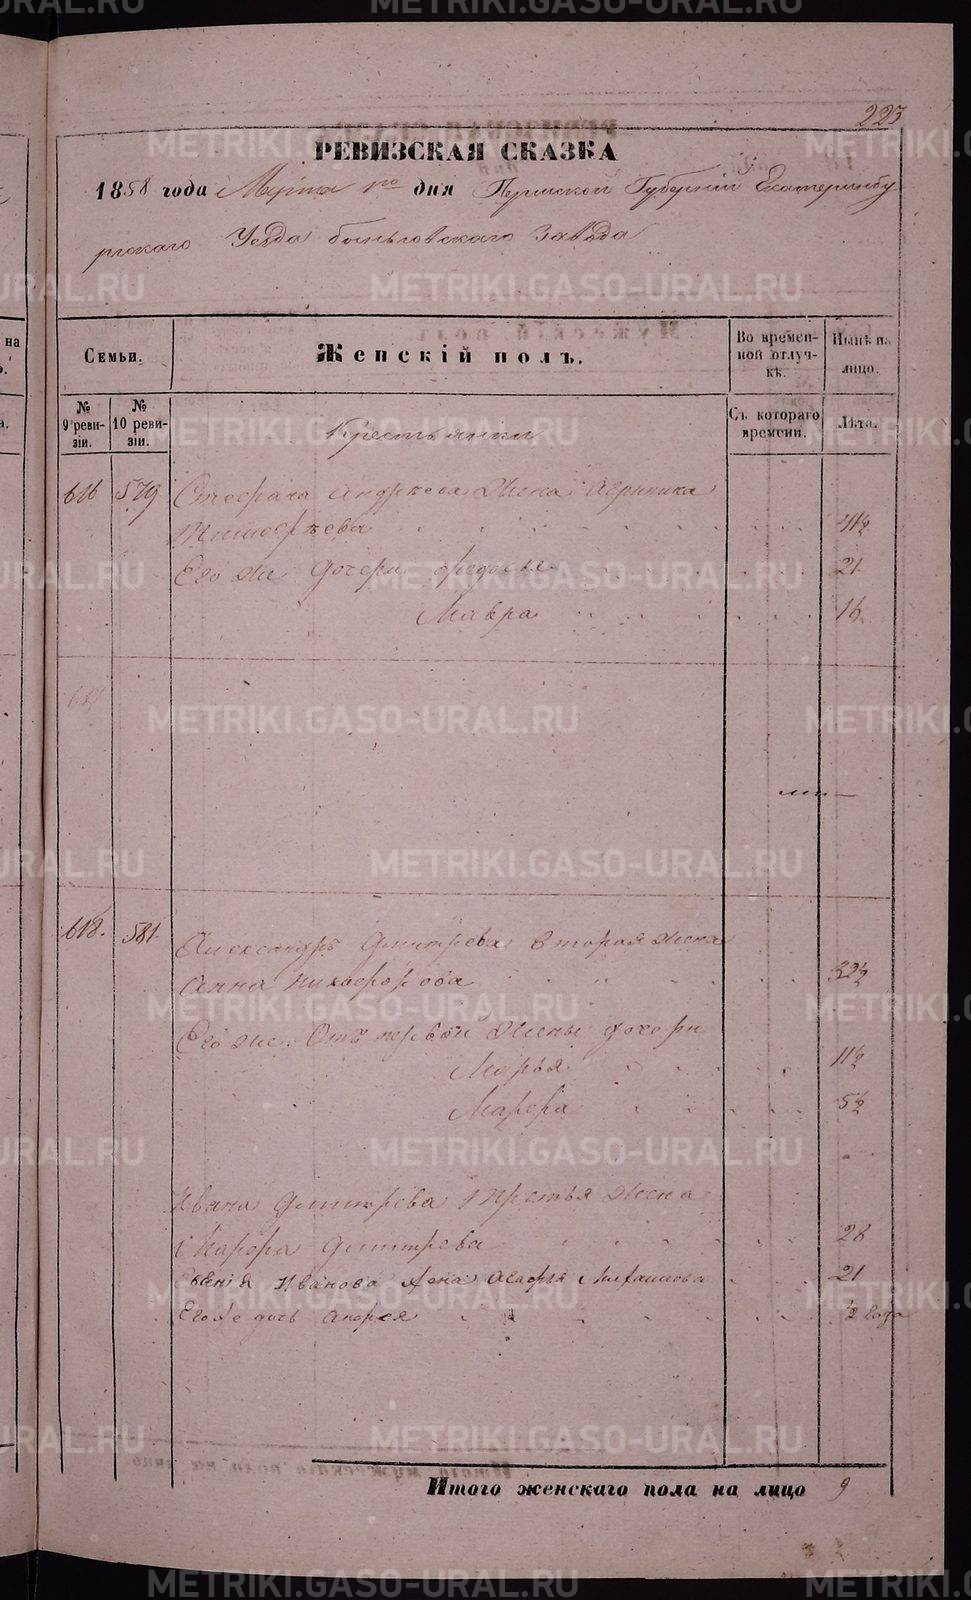 223
РЕВИЗСКАЯ СКАЗКА
1858 года Марта 1го дня Пермской Губернiи Екатеринбу
ргскаго Уезда быньговскаго Завода
Семьи.
Женскiй полъ.
Во времен-
ной отлуч-
кѣ.
Нынѣ на
лицо.
№
9 реви-
зiи.
№
10 реви-
зiи.
Крестьянки
Съ котораго
времени.
Лѣта.
616 579 Стефана Андрѣева Жена Агрипина
Тимофѣева 41½
Его же Дочери Федосья 21
Мавра 16
617
618. 581. Александръ Дмитрева вторая жена
Анна Никифорова 32½
Его же Отъ первой Жены дочери
Марья 11½
Марфа 5½
Ивана Дмитрева Третья жена
Марфа Дмитрева 26
Иванова Жена Агафья 21
Его же дочь ½ года
Итого женскаго пола на лицо 9
METRIKI.GASO-URAL.RU